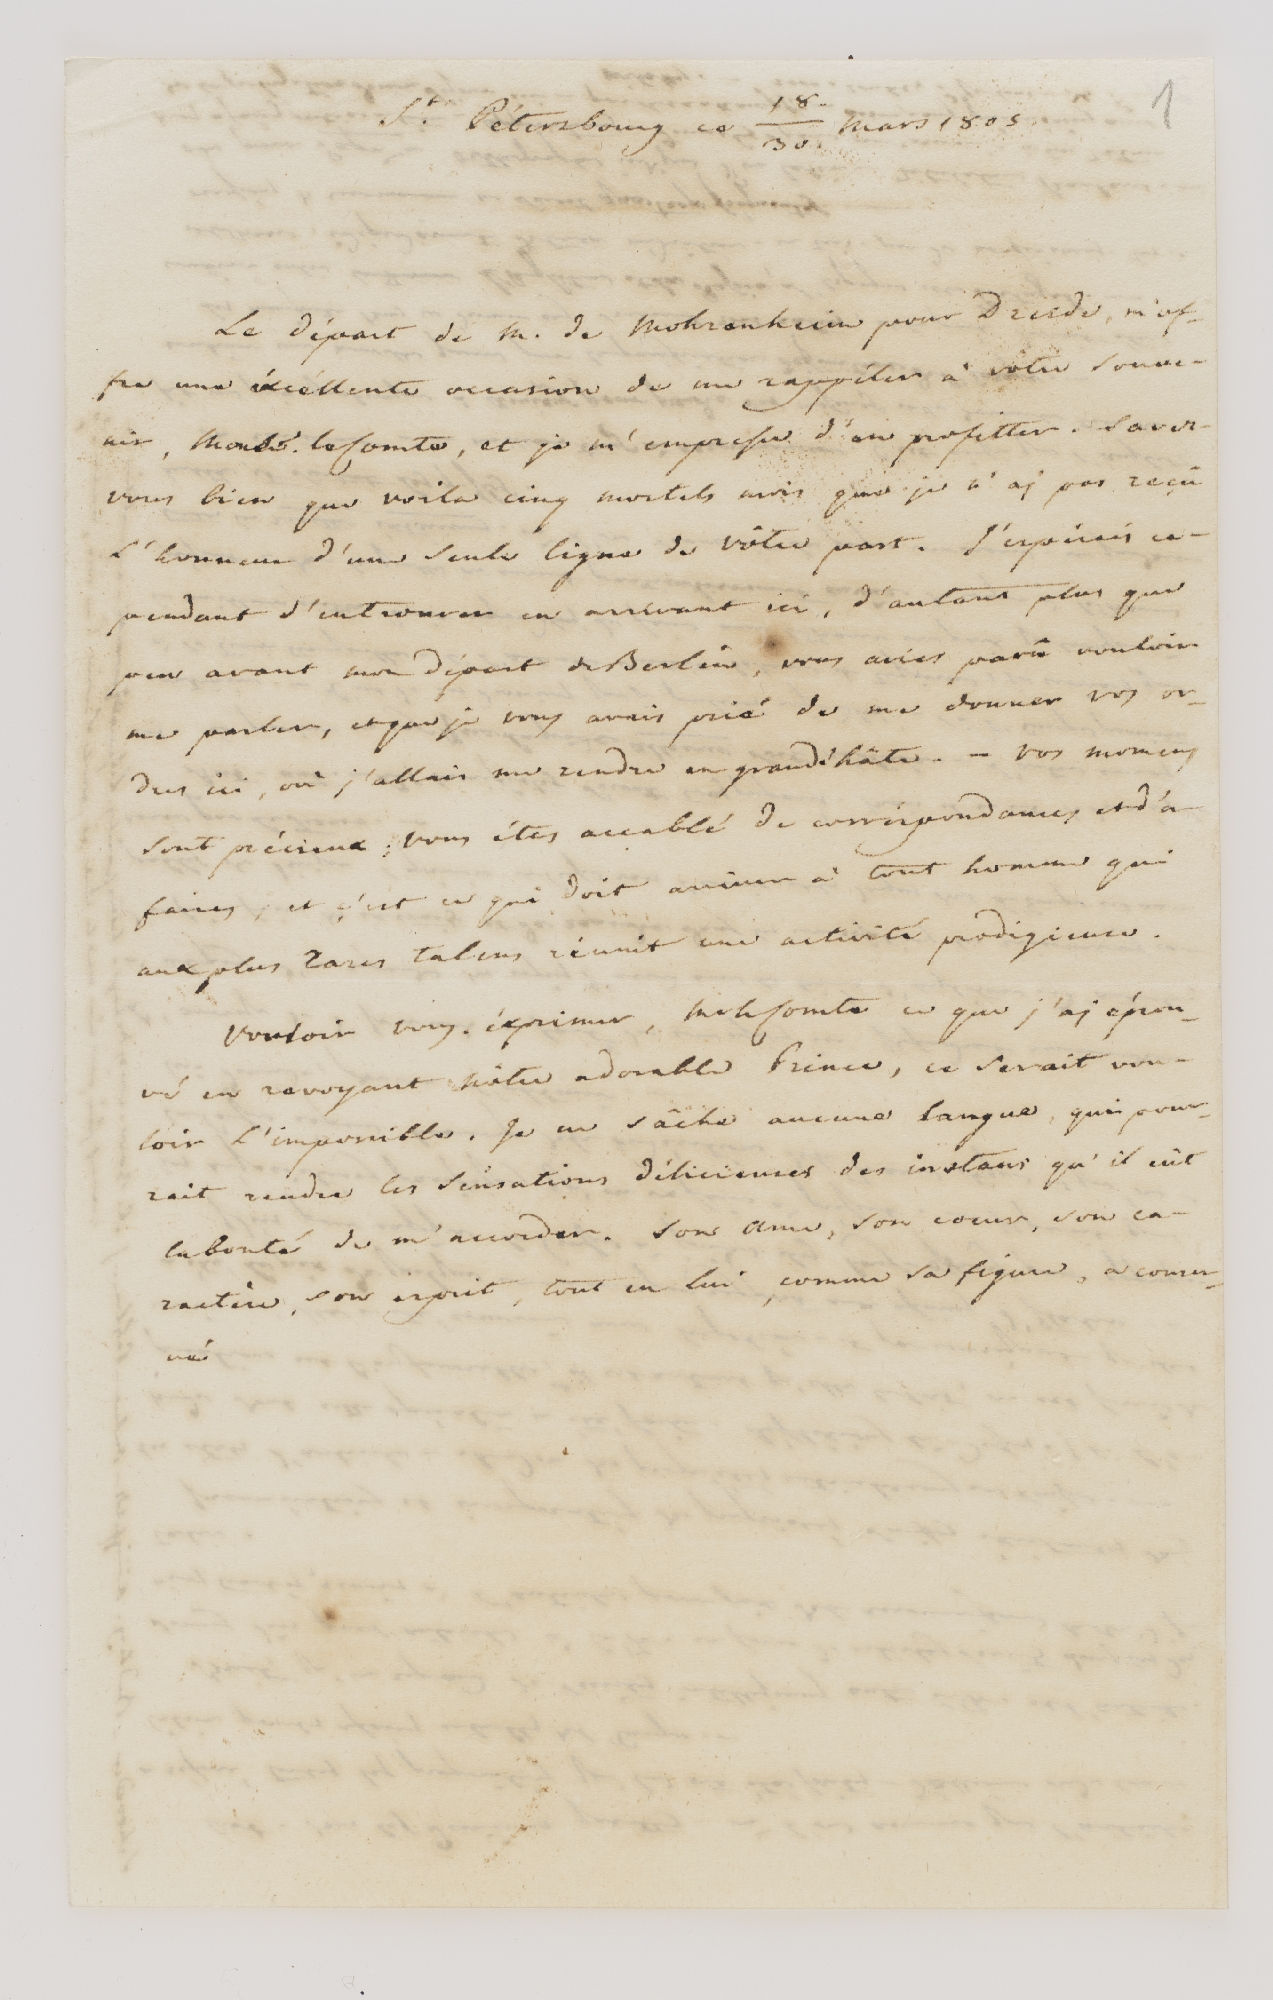 1
St. Pétersbourg ce 18/30 Mars 1805
Le départ de M. de Mohrenheim pour Dresde, m'of-
fre une éxcéllente occasion de me rappéler à vôtre souve-
nir, Mons. le Comte, et je m'empresse d'en profitter. Savez-
vous bien que voila cinq mortels mois que je n'aj pas reçû
l'honneur d'une seule ligne de vôtre part. J'espérais ce-
pendant d'en trouver en arrivant ici, d'autant plus que
peu avant mon départ de Berlin, vous aviés parû vouloir
me parler, et que je vous avais prié de me donner vos or-
dres ici, où j'allais me rendre en grand'hâte. - Vos momens
sont précieux; vous étes accablé de corréspondances et d'a-
faires, et c'est ce qui doit arriver à tout homme qui
aux plus rares talens réunit une activité prodigieuse.
Vouloir vous éxprimer, M. le Comte ce que j'aj éprou-
vé en revoyant nôtre adorable Prince, ce serait vou-
loir l'impossible. Je ne sâche aucune langue, qui pour-
rait rendre les sensations délicieuses des instans qu'il eût
la bonté de m'accorder. Son ame, son coeur, son ca-
ractère, son esprit, tout en lui, comme sa figure, a conser-
vé